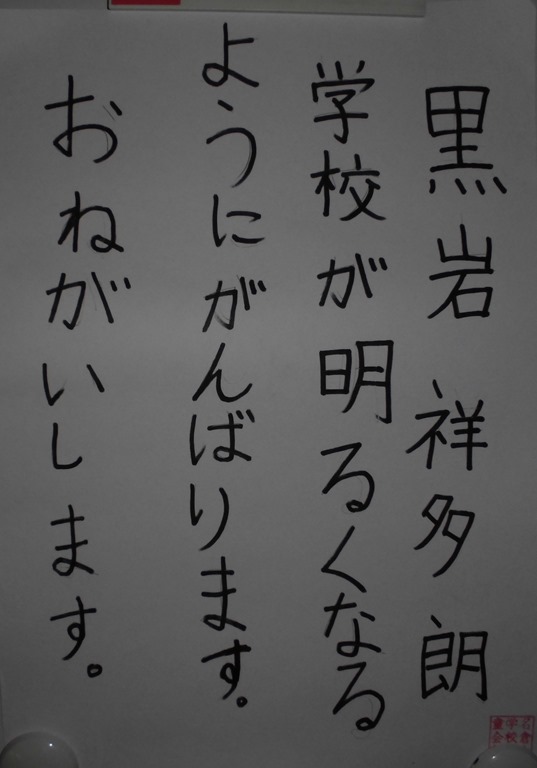 黒岩 祥多朗
学校が明るくなる
ようにがんばります。
おねがいします。
石倉
学校
童会